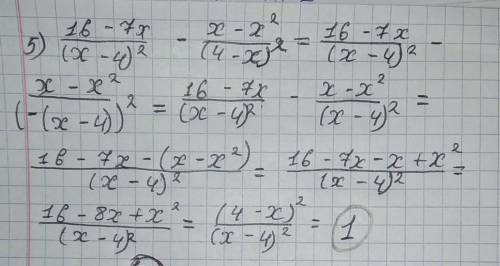 5) (16 - 7x)/(x - 4)² - (x - x²)/(4 - x)² = (16 - 7x)/(x - 4)² -
(x - x²)/(-(x - 4))² = (16 - 7x)/(x - 4)² - (x - x²)/(x - 4)² =
(16 - 7x - (x - x²))/(x - 4)² = (16 - 7x - x + x²)/(x - 4)² =
(16 - 8x + x²)/(x - 4)² = (4 - x)²/(x - 4)² = 1